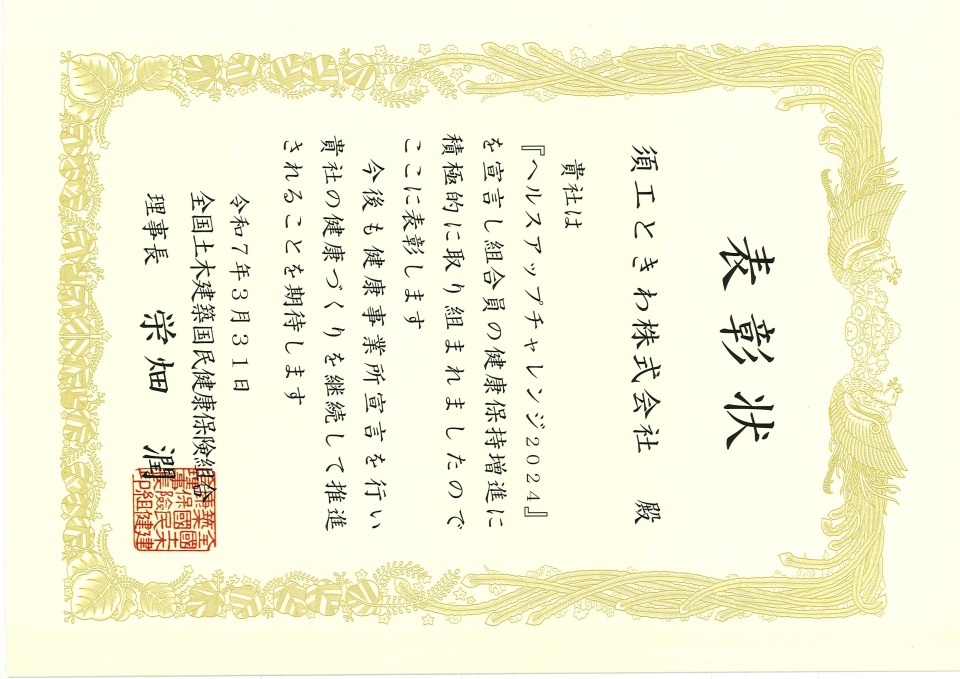 表彰状
須工ときわ株式会社 殿
貴社は
『ヘルスアップチャレンジ2024』
を宣言し組合員の健康保持増進に
積極的に取り組まれましたので
ここに表彰します
今後も健康事業所宣言を行い
貴社の健康づくりを継続して推進
されることを期待します
令和7年3月31日
全国土木建築国民健康保険組合
理事長 栄畑 潤